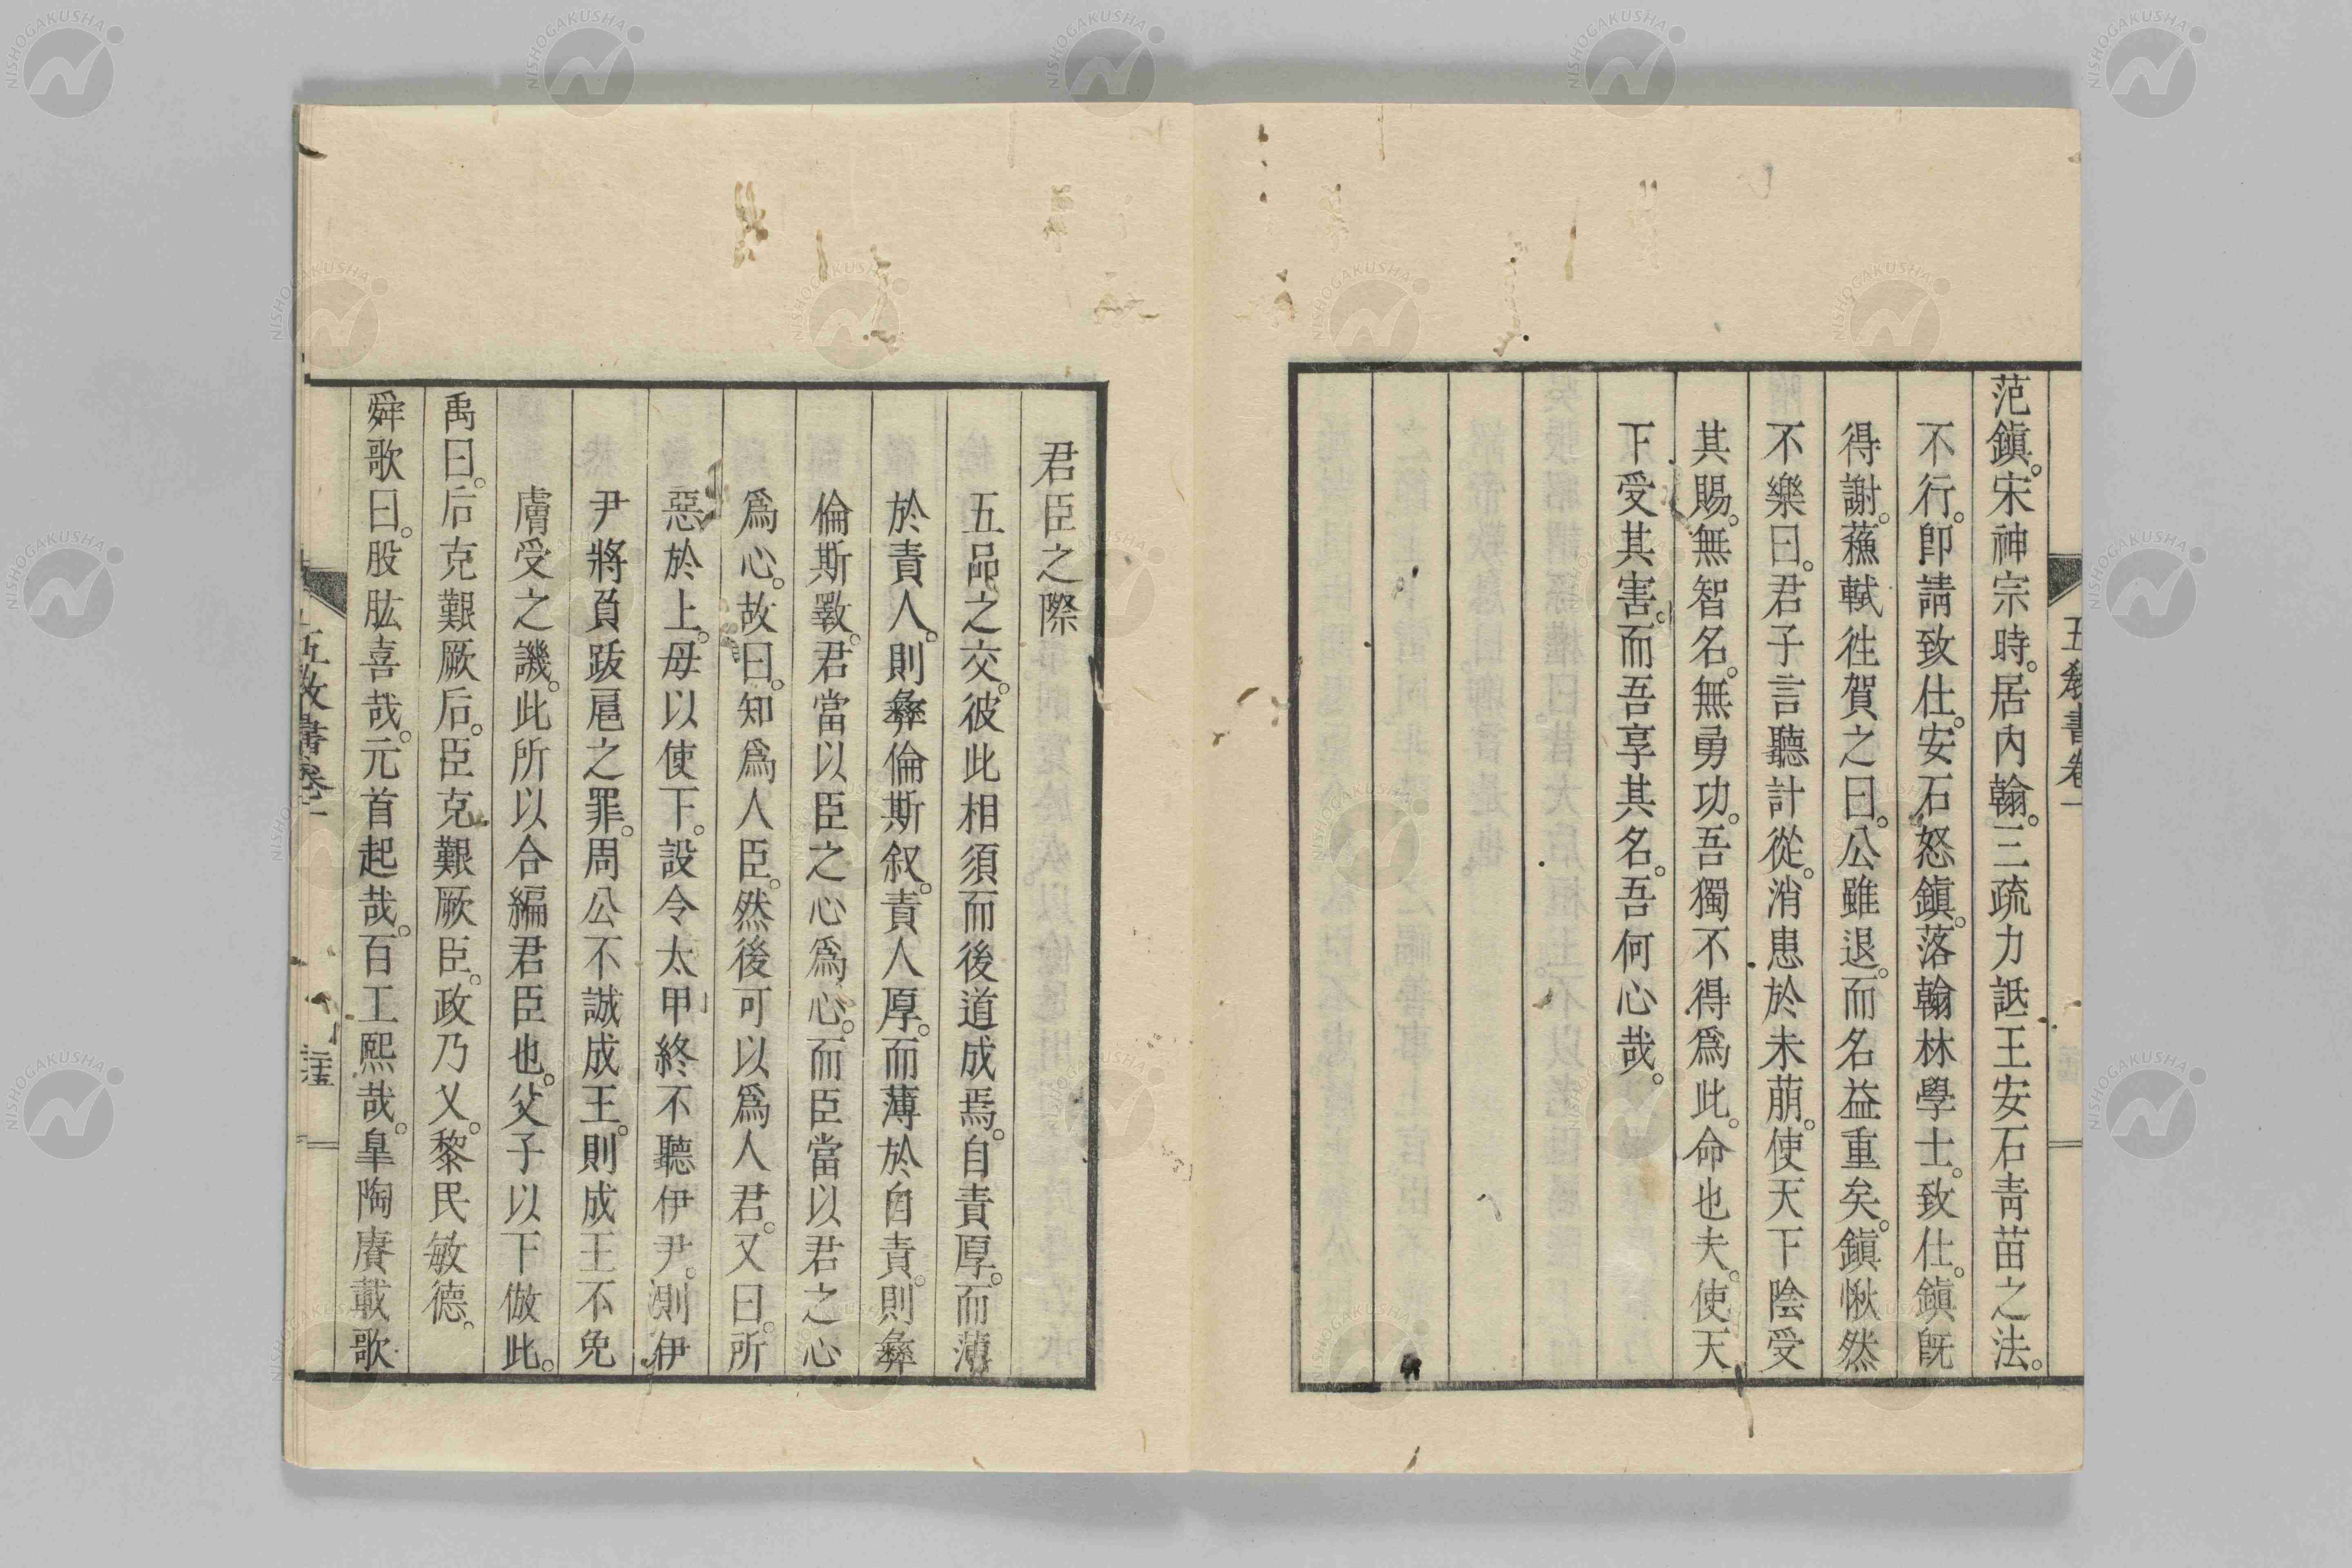 五教書卷一
范鎭。宋神宗時。居内翰。三疏力詆王安石靑苗之法。
不行。卽請致仕。安石怒鎭。落翰林學士。致仕。鎭既
得謝。蘓軾徃賀之曰。公雖退。而名益重矣。鎭愀然
不樂曰。君子言聽計從。消患於未萠。使天下陰受
其賜。無智名。無勇功。吾獨不得爲此。命也夫。使天
下受其害。而吾享其名。吾何心哉。
君臣之際
五品之交。彼此相須而後道成焉。自責厚。而薄
於責人。則彝倫斯叙。責人厚。而薄於自責。則彝
倫斯斁。君當以臣之心爲心。而臣當以君之心
爲心。故曰。知爲人臣。然後可以爲人君。又曰。所
惡於上。毋以使下。設令太甲終不聽伊尹。則伊
尹將負跋扈之罪。周公不諴成王。則成王不免
膚受之譏。此所以合編君臣也。父子以下倣此。
禹曰。后克艱厥后。臣克艱厥臣。政乃乂。黎民敏德。
舜歌曰。股肱喜哉。元首起哉。百工熙哉。皐陶賡載歌
五敎書卷一
二十五
NISHOGAKUSHA